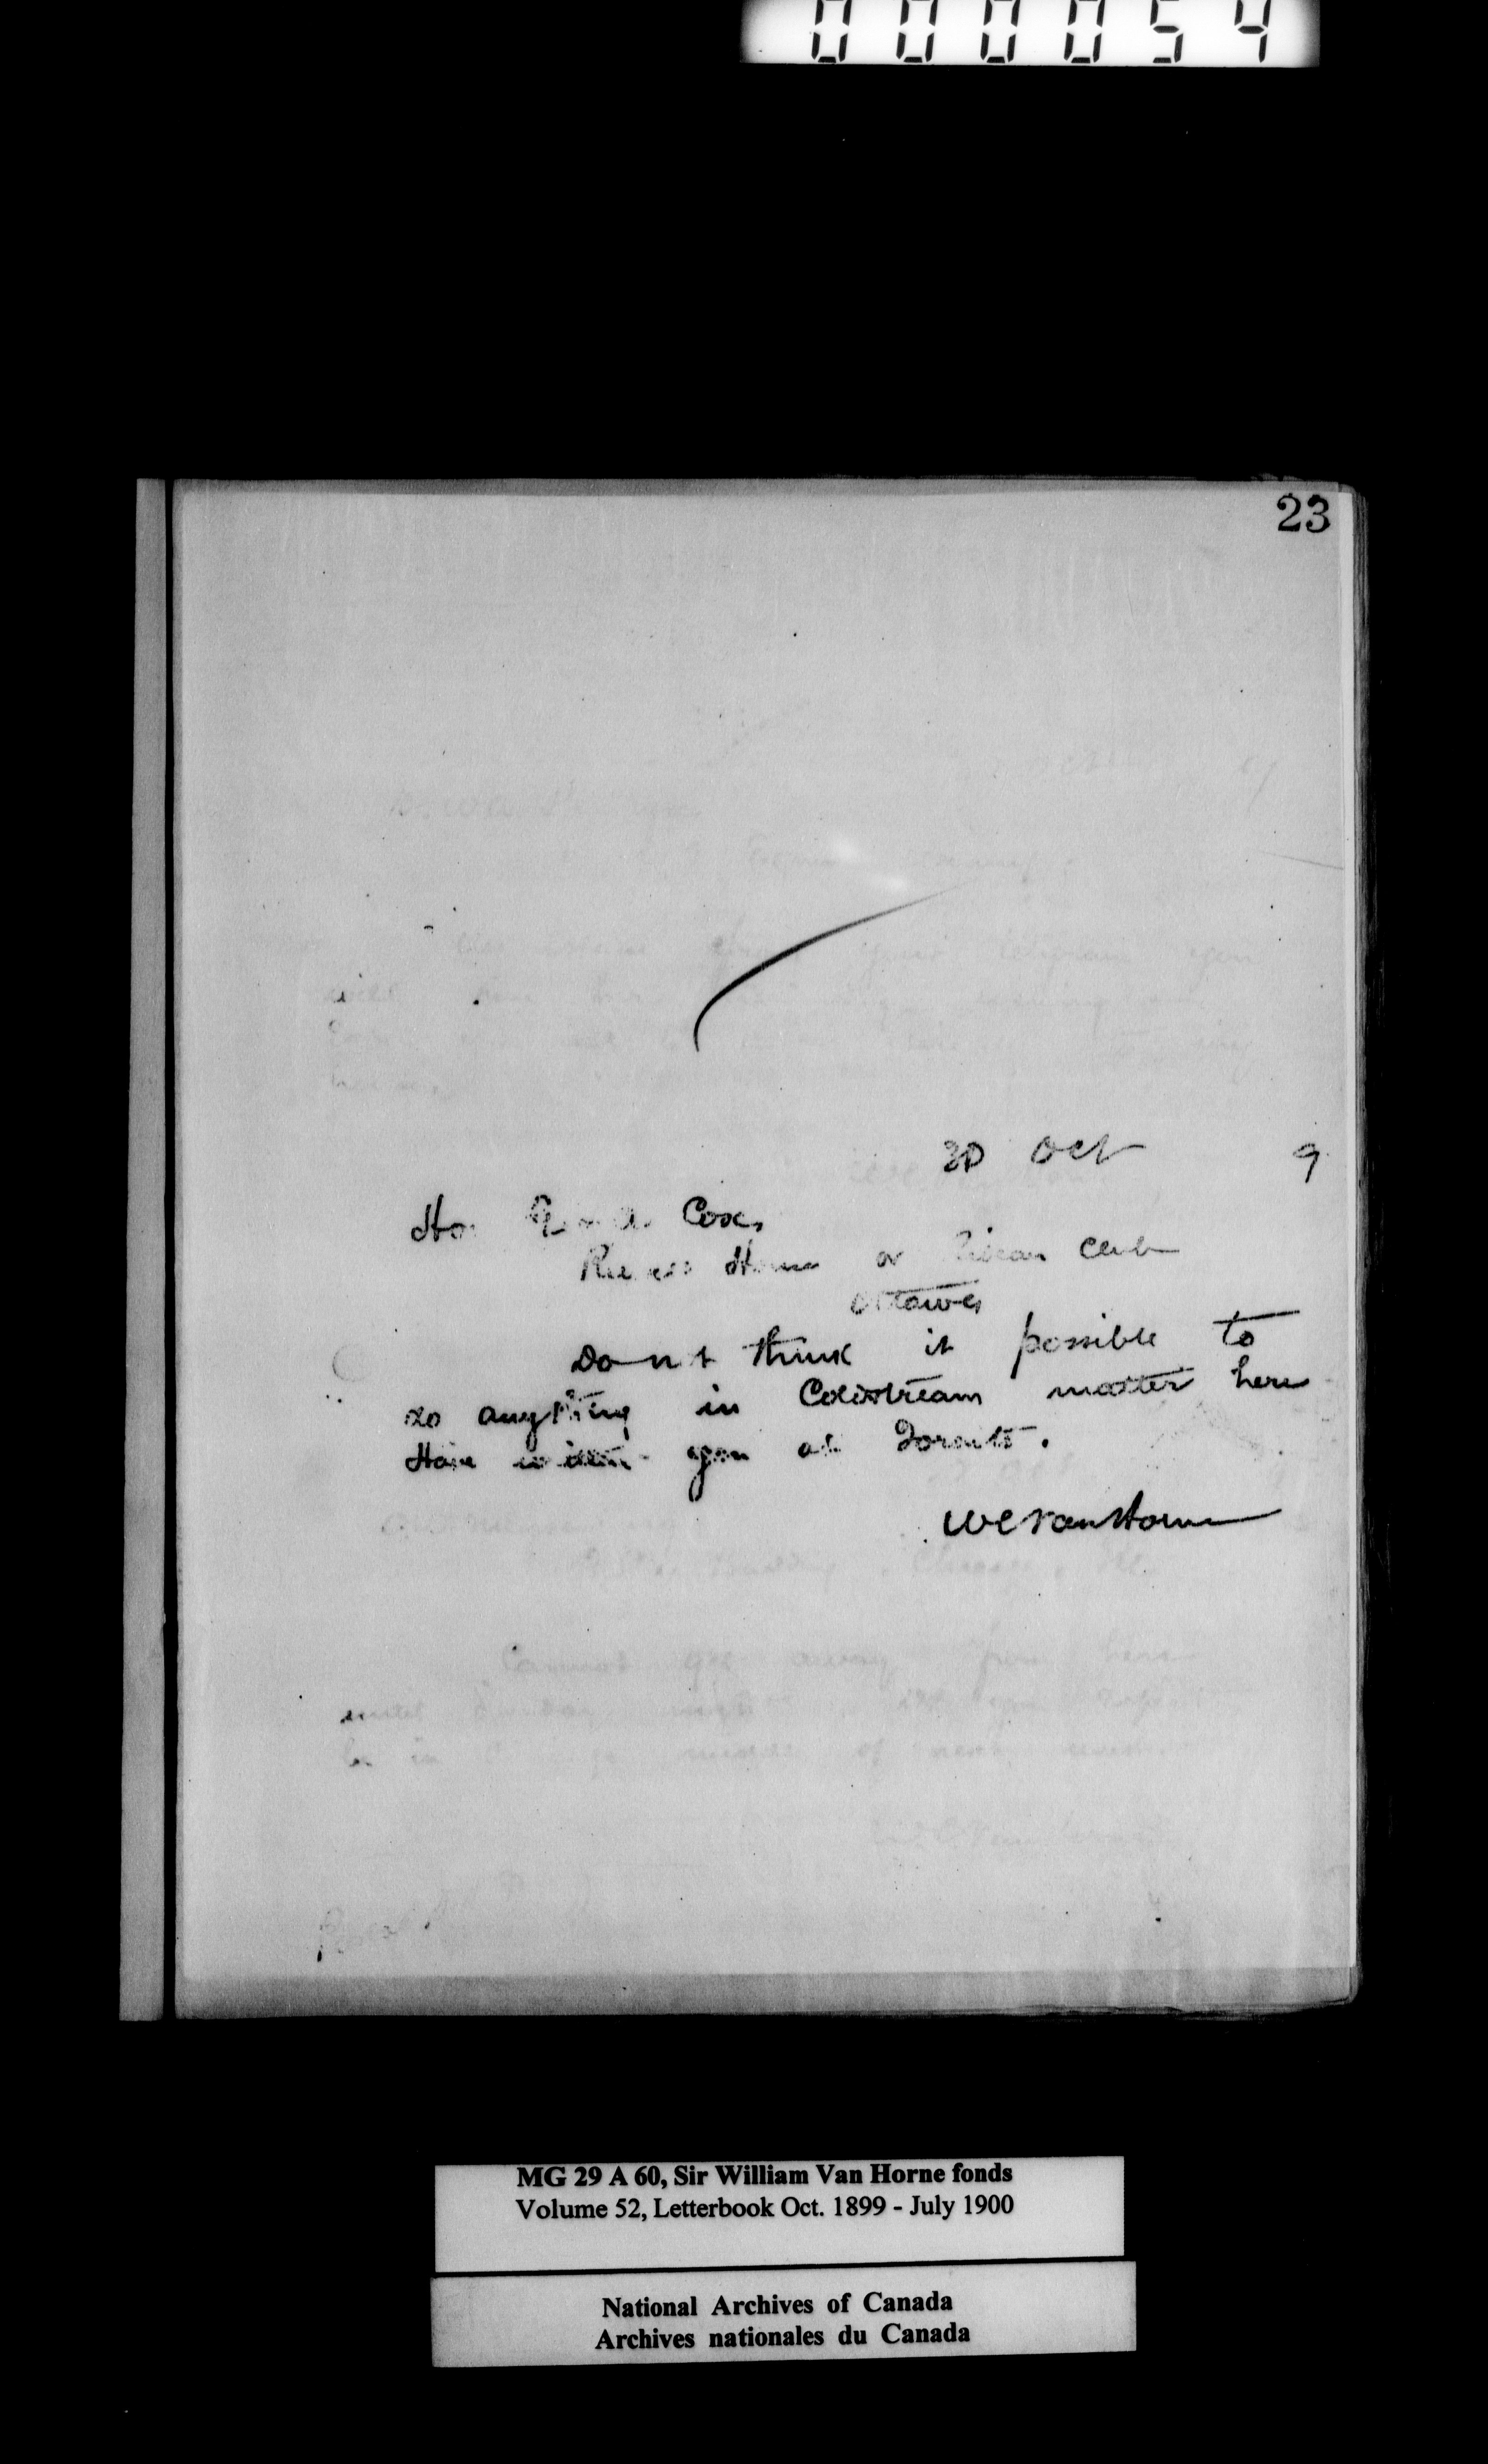 000054
23
30 Oct 9
Hon Geo A. Cox,
Russell House or Rideau Club
Ottawa
Don't think it possible to
do anything in Coldstream matter here
Have written you at Toronto.
WCVanHorne
MG 29 A 60, Sir William Van Horne fonds
Volume 52, Letterbook Oct. 1899 - July 1900
National Archives of Canada
Archives nationales du Canada